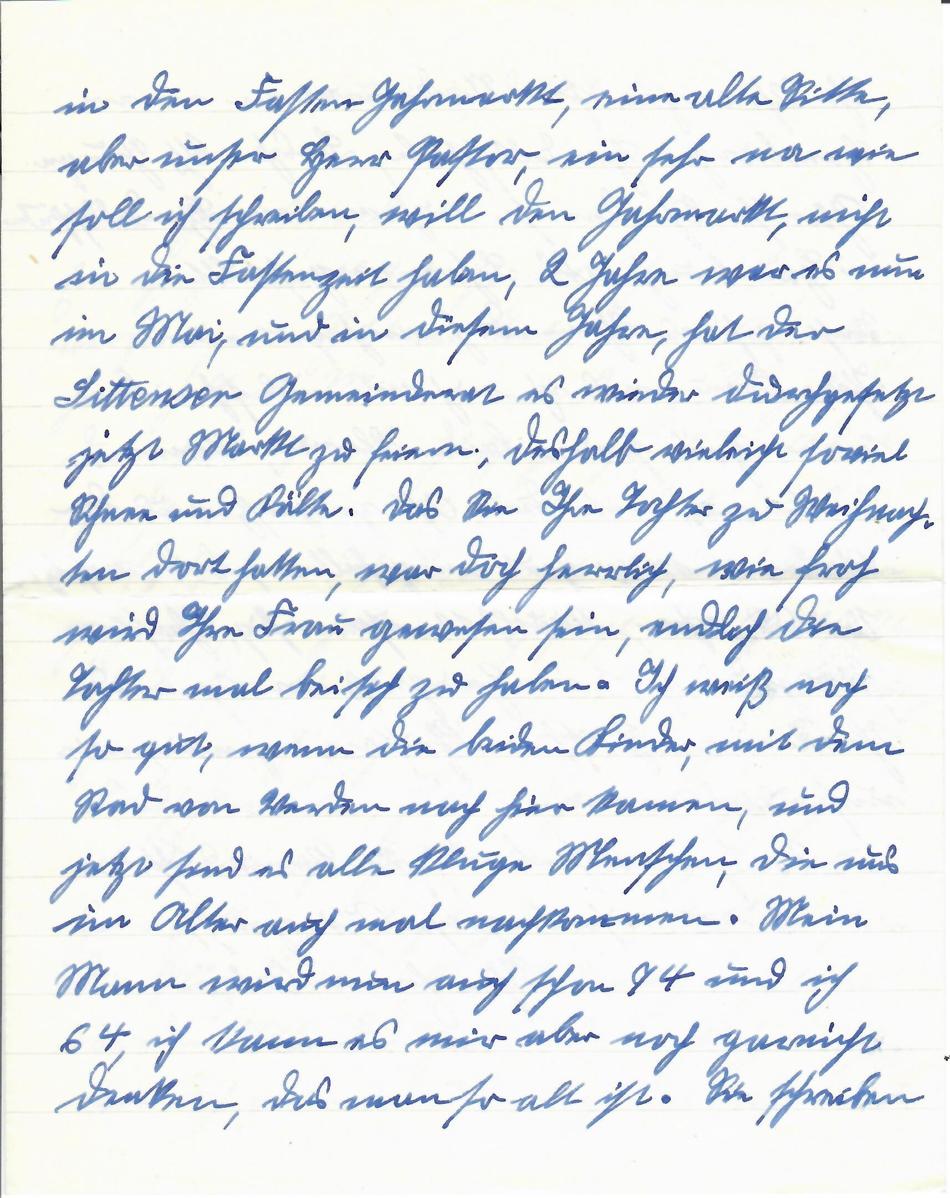 in den Fasten Jahrmarkt, eine alte Sitte,
aber unser Herr Pastor, ein sehr na wie
soll ich schreiben, will den Jahrmarkt, nicht
in die Fastenzeit haben, 2 Jahre war es nun
im Mai, und in diesem Jahre, hat der
Sittenser Gemeinderat es wieder durchgesetzt
jetzt Markt zu feiern, deshalb vieleicht soviel
Schnee und Kälte. Das Sie Ihre Tochter zu Weihnach-
ten dort hatten, war doch herrlich, wie froh
wird Ihre Frau gewesen sein, endlich die
Tochter mal bei sich zu haben. Ich weiß noch
so gut, wenn die beiden Kinder, mit dem
Rad von Verden nach hier kamen, und
jetzt sind es alle kluge Menschen, die uns
im Alter auch mal nachkommen. Mein
Mann wird nun auch schon 74 und ich
64, ich kann es mir aber noch garnicht
denken, das man so alt ist. Sie schreiben